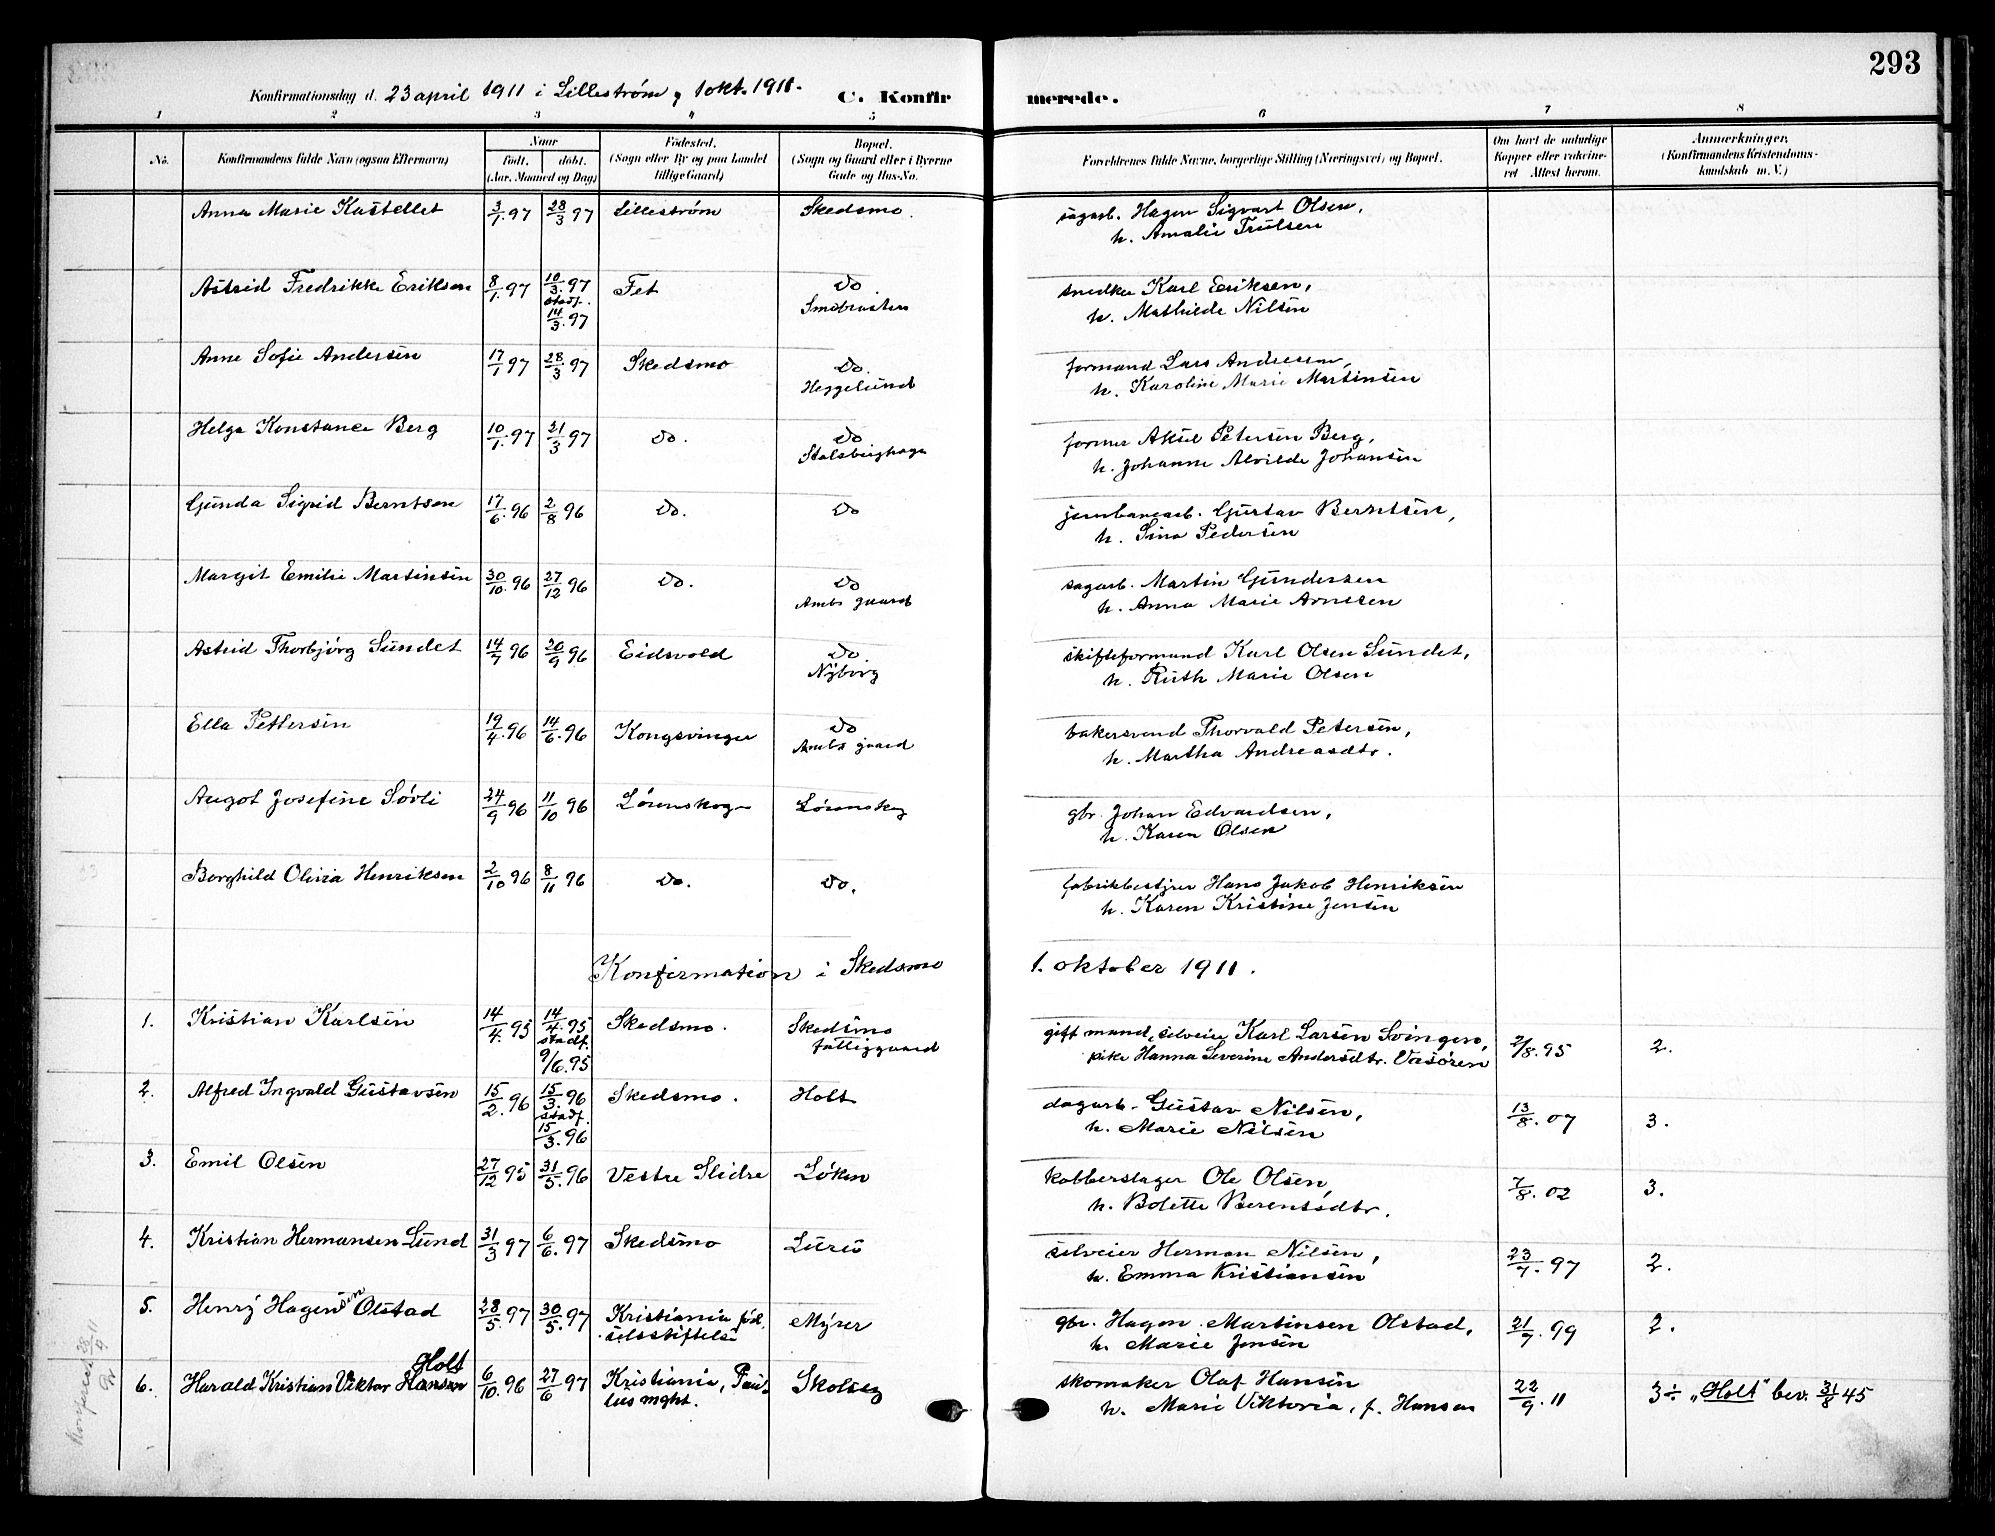 293
Konfirmationsdag d. 23 april 1911 i Lilleström, 1 okt. 1911.
C. Konfirmerede.
1 2 3 4 5 6 7 8
No. Konfirmandens fulde Navn (ogsaa Efternavn) Naar födt. döbt. (Aar, Maaned og Dag) Födested. (Sogn eller By og paa Landet tillige Gaard) Bopæl. (Sogn og Gaard eller i Byerne Gade og Hus-No. Forældrenes fulde Navne, borgerlige Stilling (Næringsvei) og Bopæl. Om havt de naturlige Kopper eller vakcineret Attest herom. Anmerkninger. (Konfirmandens Kristendomskundskab m. V.)
Anna Marie Kastellet 3/1 97 28/3 97 Lilleström Skedsmo. sagarb. Hagen Sigvart Olsen,
h. Amalie Trulsen
Astrid Fredrikke Eriksen 8/1. 97 10/3. 97 Fet Do snedker Karl Eriksen,
stadf. 14/3. 97 h. Mathilde Nilsen
Anne Sofie Andersen 17/1 97 28/3 97 Skedsmo Do. formand Lars Andresen,
Heggelund h. Karoline Marie Martinsen
Helga Konstance Berg 10/1. 97 21/3 97 do. Do former Aksel Petersen Berg,
Stalsberghagen h. Johanne Alvilde Johansen
Gunda Sigrid Berntsen 17/6. 96 2/8 96 Do. Do jernbanearb. Gustav Berntsen,
h. Sina Pedersen
Margit Emilie Martinsen 30/10. 96 27/12 96 Do. Do sagarb. Martin Gundersen
Ambs gaard h. Anna Marie Arnesen
Astrid Thorbjörg Sundet 14/7 96 20/9 96 Eidsvold Do skifteformand Karl Olsen Sundet,
Nyborg h. Ruth Marie Olsen
Ella Pettersen 19/4. 96 14/6. 96 Kongsvinger Do bakersvend Thorvald Petersen,
Ambs gaard h. Martha Andreasdtr.
Augot Josefine Sövli 24/9 96 11/10 96 Lörenskog Lörenskog gbr. Johan Edvardsen,
h. Karen Olsen
Borghild Olivia Henriksen 2/10 96 8/11 96 do. Do. fabrikbestjrer Hans Jakob Henriksen
h. Karen Kristine Jensen
Konfirmation i Skedsmo 1. oktober 1911.
1. Kristian Karlsen 14/4. 95 14/4. 95 Skedsmo. Skedsmo gift mand, selveier Karl Larsen Svingen, 2/8. 95 2.
stadf. 9/6. 95 fattiggaard pike Hanna Severine Andersdtr. Vasören
2. Alfred Ingvald Gustavsen 15/2. 96 15/3. 96 Skedsmo. Holt dagarb. Gustav Nilsen, 13/8. 07 3.
stadf. 15/3. 96 h. Marie Nilsen
3. Emil Olsen 27/12 95 31/5. 96 Vestre Slidre Löken kobberslager Ole Olsen, 7/8. 02 3.
h. Bolette Berentsdtr.
4. Kristian Hermansen Lund 31/3 97 6/6. 97 Skedsmo Lurud selveier Herman Nilsen, 23/7. 97 2.
h. Emma Kristiansen
5. Henry Hagensen Olstad 28/5. 97 30/5. 97 Kristiania föd. Myrer gbr. Hagen Martinsen Olstad, 21/7. 99 2.
selsstiftelse h. Marie Jensen
Holt
6. Harald Kristian Viktor Hansen 6/10. 96 27/6 97 Kristiania, Pau- Skolseg skomaker Olaf Hansen 22/9. 11 3÷ "Holt" bev. 31/8 45
lus mght. h. Marie Viktoria, f. Hansen